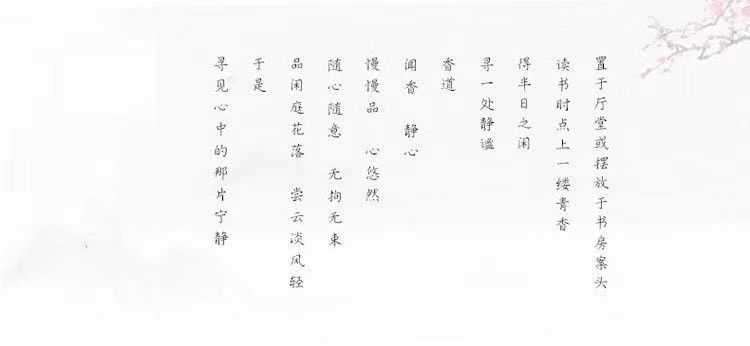 置于厅堂或摆放于书房案头
读书时点上一缕青香
得半日之闲
寻一处静谧
香道
闻香 静心
慢慢品 心悠然
随心随意 无拘无束
品闲庭花落 尝云淡风轻
于是
寻见心中的那片宁静